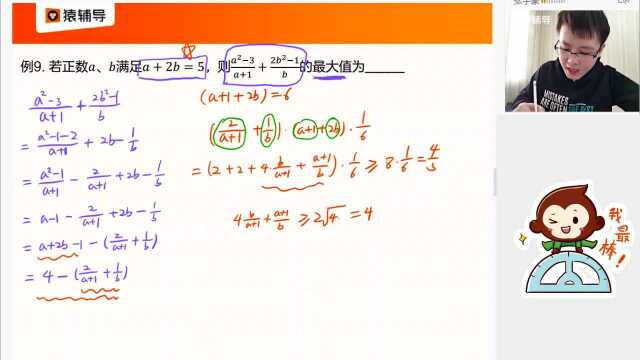 猿辅导
例9. 若正数a、b满足a + 2b = 5，则 (a²−3)/(a+1) + (2b²−1)/b 的最大值为______
(a²−3)/(a+1) + (2b²−1)/b
= (a²−1−2)/(a+1) + 2b − 1/b
= (a²−1)/(a+1) − 2/(a+1) + 2b − 1/b
= a−1 − 2/(a+1) + 2b − 1/b
= a+2b −1 − (2/(a+1) + 1/b)
= 4 − (2/(a+1) + 1/b)
(a+1+2b) = 6
(2/(a+1) + 1/b) · (a+1+2b) · 1/6
= (2 + 2 + 4·b/(a+1) + (a+1)/b) · 1/6 ⩾ 8 · 1/6 = 4/3
4 b/(a+1) + (a+1)/b ⩾ 2√4 = 4
MISTAKES
ARE OFTEN
我最棒!